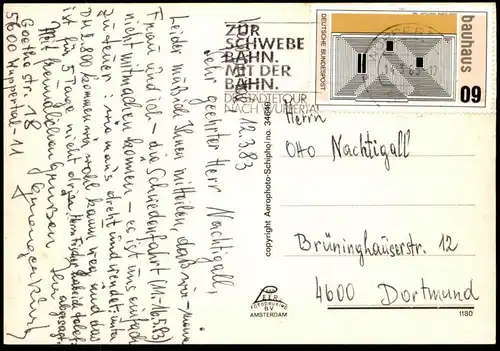 12.3.83
Sehr geehrter Herr Nachtigall,
Leider muß ich Ihnen mitteilen, daß wir – meine
Frau und ich – die Schiedenfahrt (11.-16.5.83)
nicht mitmachen können – es ist uns einfach
zu teuer: wie man's dreht und wendet, unter
DM 2.800 kommen wir wohl kaum weg und das
ist für 5 Tage nicht drin. Herrn Fischer habe ich telef.
abgesagt.
Mit freundlichen Grüßen
Goethe str. 18
5600 Wuppertal-11
ZUR
SCHWEBE
BAHN.
MIT DER
BAHN.
DIE STÄDTETOUR
NACH WUPPERTAL
DEUTSCHE BUNDESPOST
bauhaus
60
Herrn
Otto Nachtigall
Brüninghauserstr. 12
4600 Dortmund
copyright Aerophoto-Schiphol
AMSTERDAM
1180